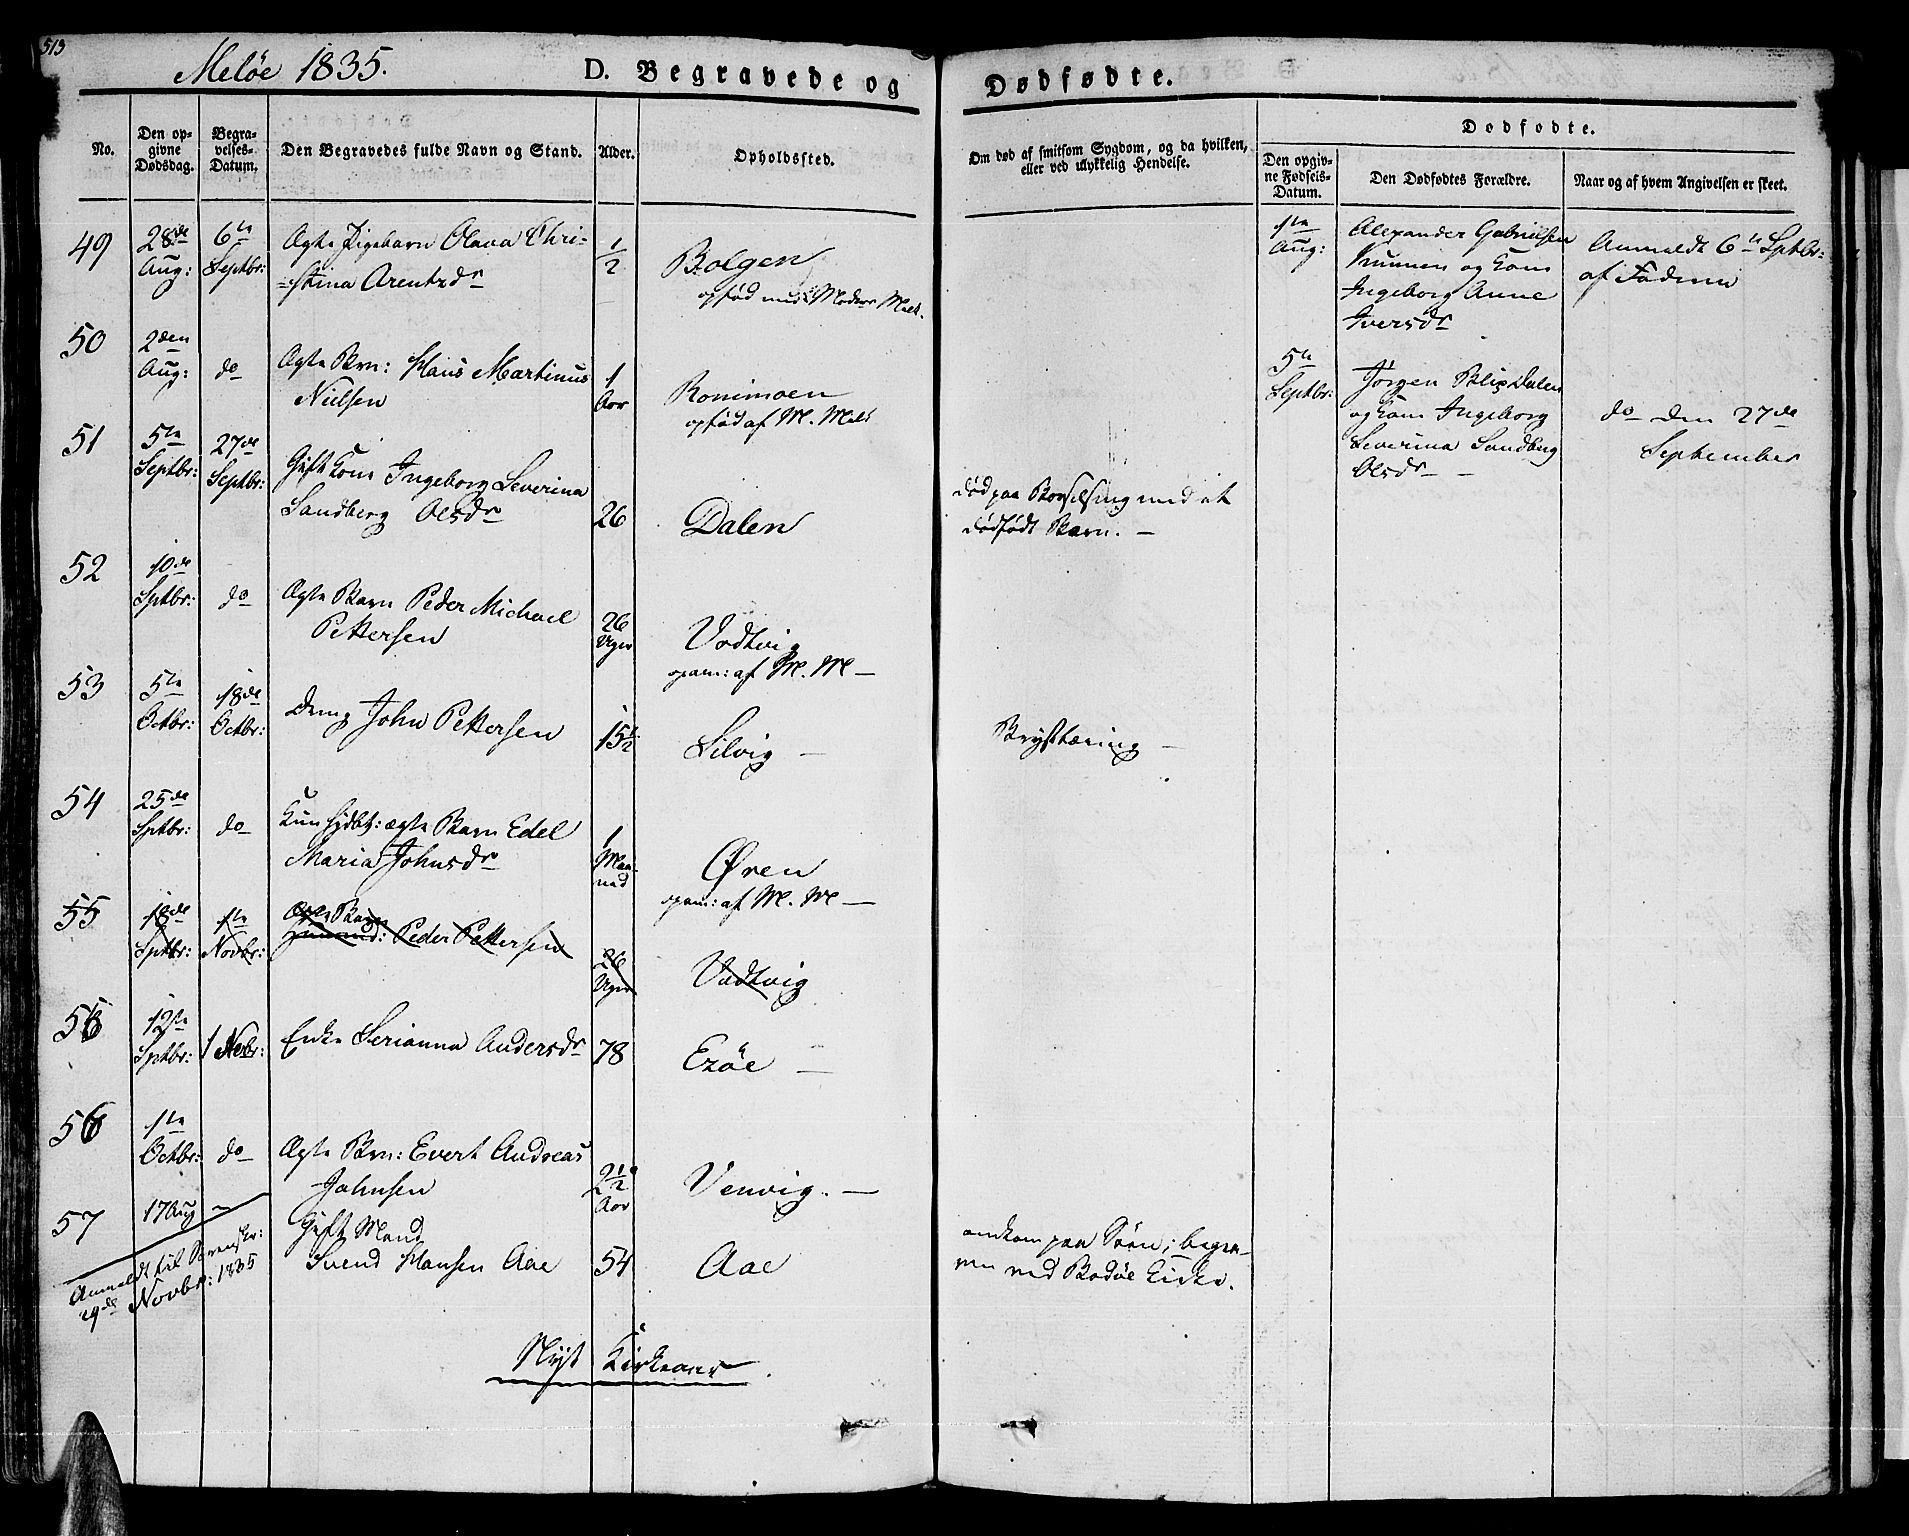 513
Meløe 1835.
D. Begravede og
Dødfødte.
No.
Den op-
givne
Dødsdag.
Begra-
velses-
Datum.
Den Begravedes fulde Navn og Stand.
Alder.
Opholdssted.
Om død af smitsom Sygdom, og da hvilken,
eller ved ulykkelig Hendelse.
Dødfødte.
Den opgiv-
ne Fødsels-
Datum.
Den Dødfødtes Forældre.
Naar og af hvem Angivelsen er skeet.
49
28de
Aug:
6te
Septbr:
Ægte Pigebarn Olava Chri-
=stina Arentzdr
1/2
Bolgen
opfød med Moders Melk.
50
2den
Aug:
do
Ægte Brn: Hans Martinus
Nielsen
1
Aar
Ronimoen
opfød af M. Melk
51
5te
Septbr:
27de
Septbr:
Gift Kone Ingeborg Severina
Sandberg Olsdr
26
Dalen
død paa Barselseng med et
dødfødt Barn. —
52
10de
Sptbr:
do
Ægte Barn Peder Michael
Pettersen
26
Uger
Vadtvig
opam: af M. M —
53
5te
Octbr:
18de
Octbr:
Dreng John Pettersen
15 1/2
Silvig —
Brysttæring —
54
25de
Sptbr:
do
Kun hjdbt: ægte Barn Edel
Maria Johnsdr
1
Maa-
ned
Øren
opam: af M. M —
55
18de
Sptbr:
1te
Novbr:
Ægte Barn
Peder Pettersen
26
Uger
Vadtvig
55
12te
Sptbr:
1 Nobr:
Enke Serianna Andersdr
78
Exöe —
56
1te
Octbr:
do
Ægte Brn: Evert Andreas
Johnsen
2 1/2
Aar
Venvig. —
57
17 Aug
—
Gift Mand
Svend Hansen Aae
54
Aae
omkom paa Søen; begra-
ven ved Bodöe Kirke.
Anmeldt til Sorenskr:
29de Novbr: 1835
Nyt Kirkeaar.
1te
Aug:
Alexander Gabrielsen
og Kone
Ingeborg Anne
Iversdr
Anmeldt 6te Sptbr:
af Faderen
5te
Septbr:
Jørgen Blix Dalen
og Kone Ingeborg
Severina Sandberg
Olsdr —
do den 27de
September